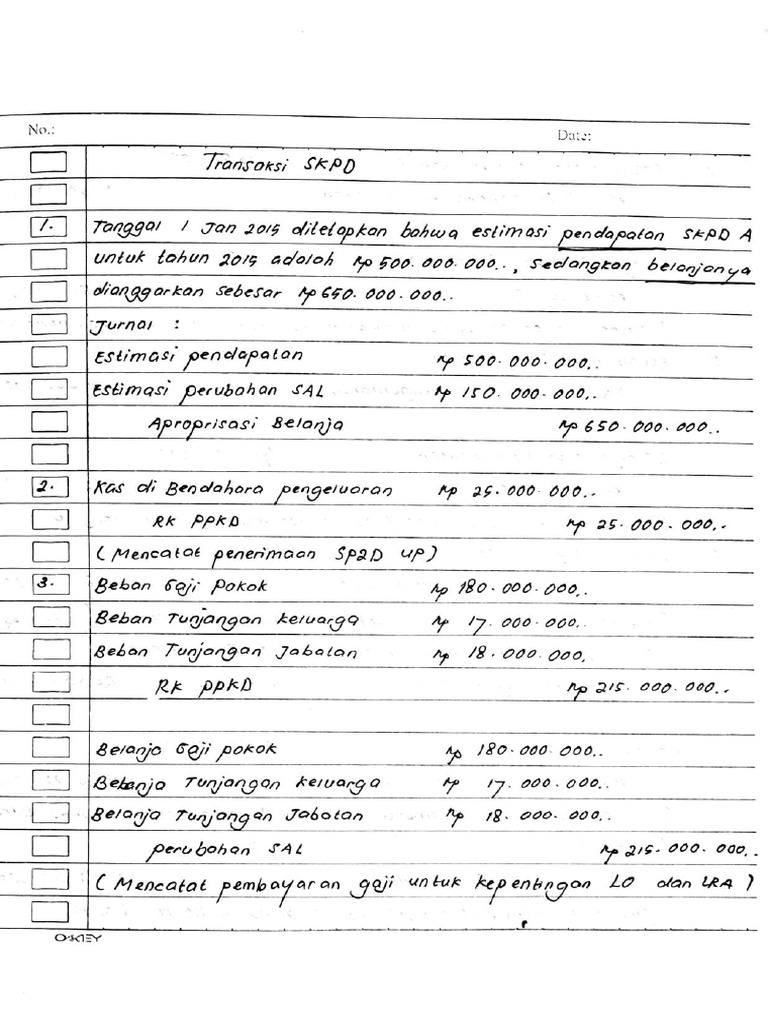 No.: Date:
Transaksi SKPD
1. Tanggal 1 Jan 2015 ditetapkan bahwa estimasi pendapatan SKPD A
untuk tahun 2015 adalah Rp 500.000.000.., sedangkan belanjanya
dianggarkan sebesar Rp 650.000.000..
Jurnal :
Estimasi pendapatan Rp 500.000.000..
Estimasi perubahan SAL Rp 150.000.000..
Aproprisasi Belanja Rp 650.000.000..
2. Kas di Bendahara pengeluaran Rp 25.000.000..
RK PPKD Rp 25.000.000..
( Mencatat penerimaan SP2D UP )
3. Beban Gaji Pokok Rp 180.000.000..
Beban Tunjangan keluarga Rp 17.000.000..
Beban Tunjangan Jabatan Rp 18.000.000.
RK PPKD Rp 215.000.000..
Belanja Gaji pokok Rp 180.000.000..
Belanja Tunjangan keluarga Rp 17.000.000..
Belanja Tunjangan Jabatan Rp 18.000.000..
perubahan SAL Rp 215.000.000..
( Mencatat pembayaran gaji untuk kepentingan LO dan LRA )
OKEY